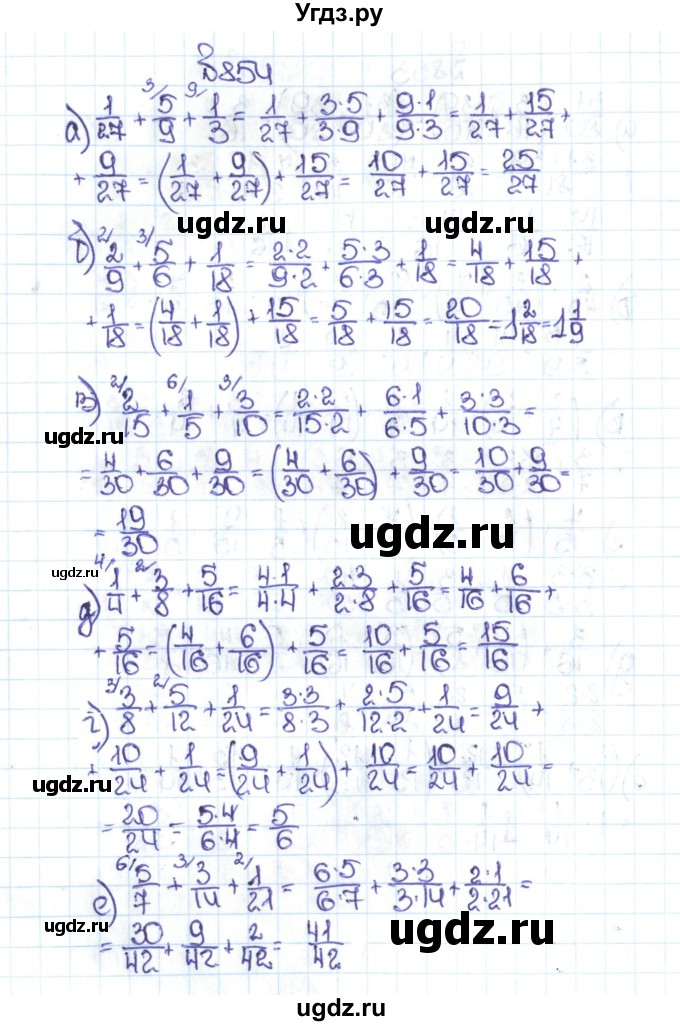 Угдз.ру
№854
а) 1/27 + ³⁾5/9 + ⁹⁾1/3 = 1/27 + 3·5/3·9 + 9·1/9·3 = 1/27 + 15/27 +
+ 9/27 = (1/27 + 9/27) + 15/27 = 10/27 + 15/27 = 25/27
ugdz.ru ugdz.ru
б) ²⁾2/9 + ³⁾5/6 + 1/18 = 2·2/9·2 + 5·3/6·3 + 1/18 = 4/18 + 15/18 +
+ 1/18 = (4/18 + 1/18) + 15/18 = 5/18 + 15/18 = 20/18 = 1 2/18 = 1 1/9
в) ²⁾2/15 + ⁶⁾1/5 + ³⁾3/10 = 2·2/15·2 + 6·1/6·5 + 3·3/10·3 =
ugdz.ru
= 4/30 + 6/30 + 9/30 = (4/30 + 6/30) + 9/30 = 10/30 + 9/30 =
= 19/30
ugdz.ru
ugdz.ru
д) ⁴⁾1/4 + ²⁾3/8 + 5/16 = 4·1/4·4 + 2·3/2·8 + 5/16 = 4/16 + 6/16 +
+ 5/16 = (4/16 + 6/16) + 5/16 = 10/16 + 5/16 = 15/16
г) ³⁾3/8 + ²⁾5/12 + 1/24 = 3·3/8·3 + 2·5/12·2 + 1/24 = 9/24 +
+ 10/24 + 1/24 = (9/24 + 1/24) + 10/24 = 10/24 + 10/24 =
ugdz.ru ugdz.ru
= 20/24 = 5·4/6·4 = 5/6
е) ⁶⁾5/7 + ³⁾3/14 + ²⁾1/21 = 6·5/6·7 + 3·3/3·14 + 2·1/2·21 =
ugdz.ru ugdz.ru
= 30/42 + 9/42 + 2/42 = 41/42
ugdz.ru